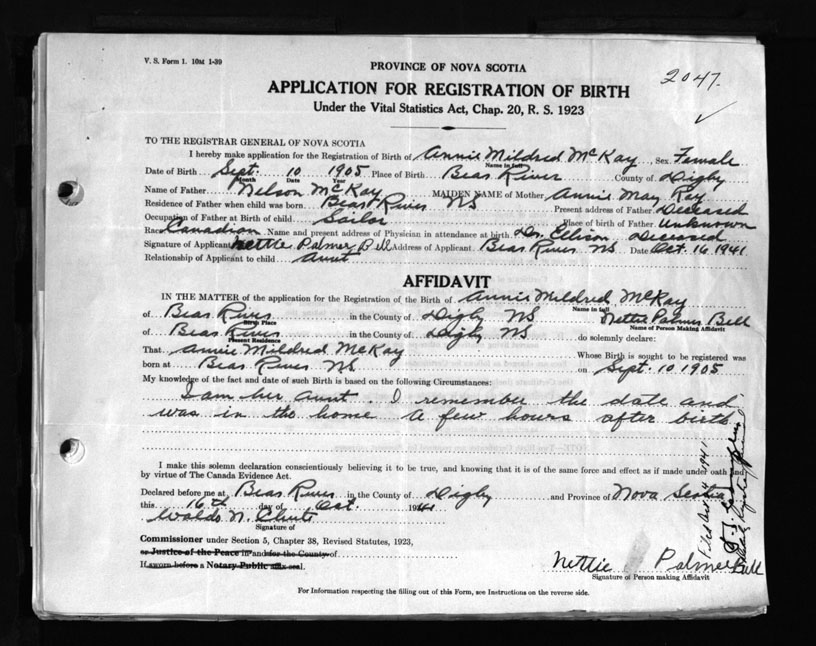 V. S. Form 1. 10M 1-39
PROVINCE OF NOVA SCOTIA
2047.
APPLICATION FOR REGISTRATION OF BIRTH
Under the Vital Statistics Act, Chap. 20, R. S. 1923
TO THE REGISTRAR GENERAL OF NOVA SCOTIA
I hereby make application for the Registration of Birth of Annie Mildred McKay Sex Female
Name in full
Date of Birth Sept. 10 1905 Place of Birth Bear River County of Digby
Month Date Year
Name of Father Nelson McKay MAIDEN NAME of Mother Annie May Ray
Residence of Father when child was born Bear River NS Present address of Father Deceased
Occupation of Father at Birth of child Sailor Place of birth of Father Unknown
Race Canadian Name and present address of Physician in attendance at birth Dr. Ellison Deceased
Signature of Applicant Nettie Palmer Bell Address of Applicant Bear River NS Date Oct. 16 1941
Relationship of Applicant to child Aunt
AFFIDAVIT
IN THE MATTER of the application for the Registration of the Birth of Annie Mildred McKay
Name in full
of Bear River in the County of Digby NS Nettie Palmer Bell
Birth Place Name of Person Making Affidavit
of Bear River in the County of Digby NS do solemnly declare:
Present Residence
That Annie Mildred McKay Whose Birth is sought to be registered was
born at Bear River NS on Sept. 10 1905
My knowledge of the fact and date of such Birth is based on the following Circumstances:
I am her Aunt. I remember the date and
was in the home a few hours after birth
I make this solemn declaration conscientiously believing it to be true, and knowing that it is of the same force and effect as if made under oath and
by virtue of The Canada Evidence Act.
Declared before me at Bear River in the County of Digby and Province of Nova Scotia
this 16th day of Oct. 1941
Waldo N. Chute
Signature of
Commissioner under Section 5, Chapter 38, Revised Statutes, 1923,
or Justice of the Peace in and for the County of
If sworn before a Notary Public affix seal.
Nettie Palmer Bell
Signature of Person making Affidavit
For Information respecting the filling out of this Form, see Instructions on the reverse side.